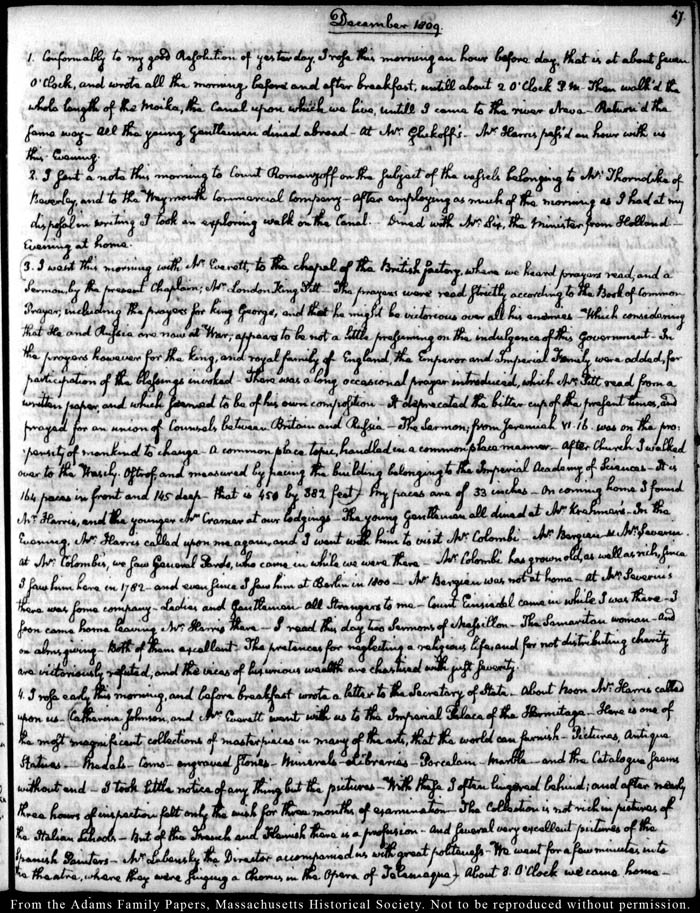 December 1809.
47
1. Conformably to my good Resolution of yesterday, I rose this morning an hour before day, that is at about seven
O'Clock, and wrote all the morning, before and after breakfast, untill about 2 O'Clock P.M. Then walk'd the
whole length of the Moika, the Canal upon which we live, untill I came to the river Neva— Return'd the
same way— All the young Gentlemen dined abroad— At Mr. Mr. Harris pass'd an hour with us
this Evening.
2. I sent a note this morning to Count Romanzoff on the subject of the vessels belonging to Mr. Thorndike of
Beverley, and to the Weymouth Commercial Company— After employing as much of the morning as I had at my
disposal in writing I took an exploring walk on the Canal. Dined with Mr. Six, the Minister from Holland—
Evening at home.
3. I went this morning with Mr. Everett, to the chapel of the British factory, where we heard prayers read, and a
Sermon, by the present Chaplain, Mr. London King Pitt— The prayers were read strictly according to the Book of Common
Prayer; including the prayers for king George, and that he might be victorious over all his enemies— Which considering
that He and Russia are now at War, appears to be not a little presuming on the indulgence of this Government— In
the prayers however for the king, and royal family of England, the Emperor and Imperial Family were added, for
participation of the blessings invoked— There was a long occasional prayer introduced, which Mr. Pitt read from a
written paper and which seemed to be of his own composition— It deprecated the bitter cup of the present times, and
prayed for an union of Counsels between Britain and Russia— The Sermon, from Jeremiah VI. 16. was on the pro-
pensity of mankind to change— A common place topic, handled in a common place manner.— After Church I walked
over to the Wasily-Ostrof, and measured by pacing the building belonging to the Imperial Academy of Sciences— It is
164 paces in front and 145 deep— that is 450 by 382 feet) My paces are of 33 inches— On coming home I found
Mr. Harris, and the younger Mr. Cramer at our lodgings— The young Gentlemen all dined at Mr. Krehmer's. In the
Evening, Mr. Harris called upon me again, and I went with him to visit Mr. Colombi— Mr. Bergien & Mr. Severin.
at Mr. Colombi's, we saw General Pardo, who came in while we were there— Mr. Colombi has grown old, as well as rich, since
I saw him here in 1782— and even since I saw him at Berlin in 1800— Mr. Bergien was not at home— At Mr. Severin's
there was some company— Ladies and Gentlemen— All Strangers to me— Count Einsiedel came in while I was there— I
soon came home leaving Mr. Harris there— I read this day two Sermons of Massillon— The Samaritan woman— and
on alms-giving— Both of them excellent— The pretences for neglecting a religious life, and for not distributing charity
are victoriously refuted, and the vices of luxurious wealth are chastised with just severity.
4. I rose early, this morning, and before breakfast wrote a letter to the Secretary of State— About Noon Mr. Harris called
upon us. (Catherine Johnson, and Mr. Everett went with us to the Imperial Palace of the Hermitage— Here is one of
the most magnificent collections of masterpieces in many of the arts, that the world can furnish— Pictures, Antique
Statues— Medals— Coins— engraved Stones— Minerals— Libraries— Porcelain— Marble— and the Catalogue seems
without end— I took little notice of any thing but the pictures— With these I often lingered behind; and after nearly
three hours of inspection felt only the wish for three months of examination— The Collection is not rich in pictures of
the Italian Schools— But of the French and Flemish there is a profusion— And several very excellent pictures of the
Spanish Painters— Mr. Labensky the Director accompanied us with great politeness— We went for a few minutes into
the theatre, where they were singing a Chorus in the Opera of Telemaque) About 3 O'Clock we came home—
From the Adams Family Papers, Massachusetts Historical Society. Not to be reproduced without permission.